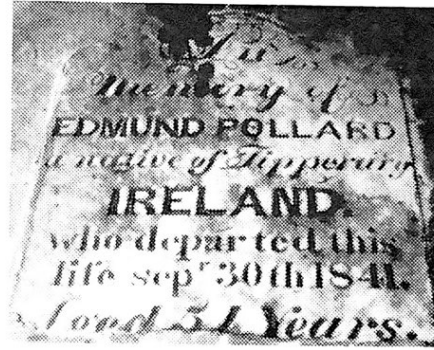 In
Memory of
EDMUND POLLARD
a native of Tipperary
IRELAND.
who departed this
life sepr 30th 1841.
Aged 51 Years.